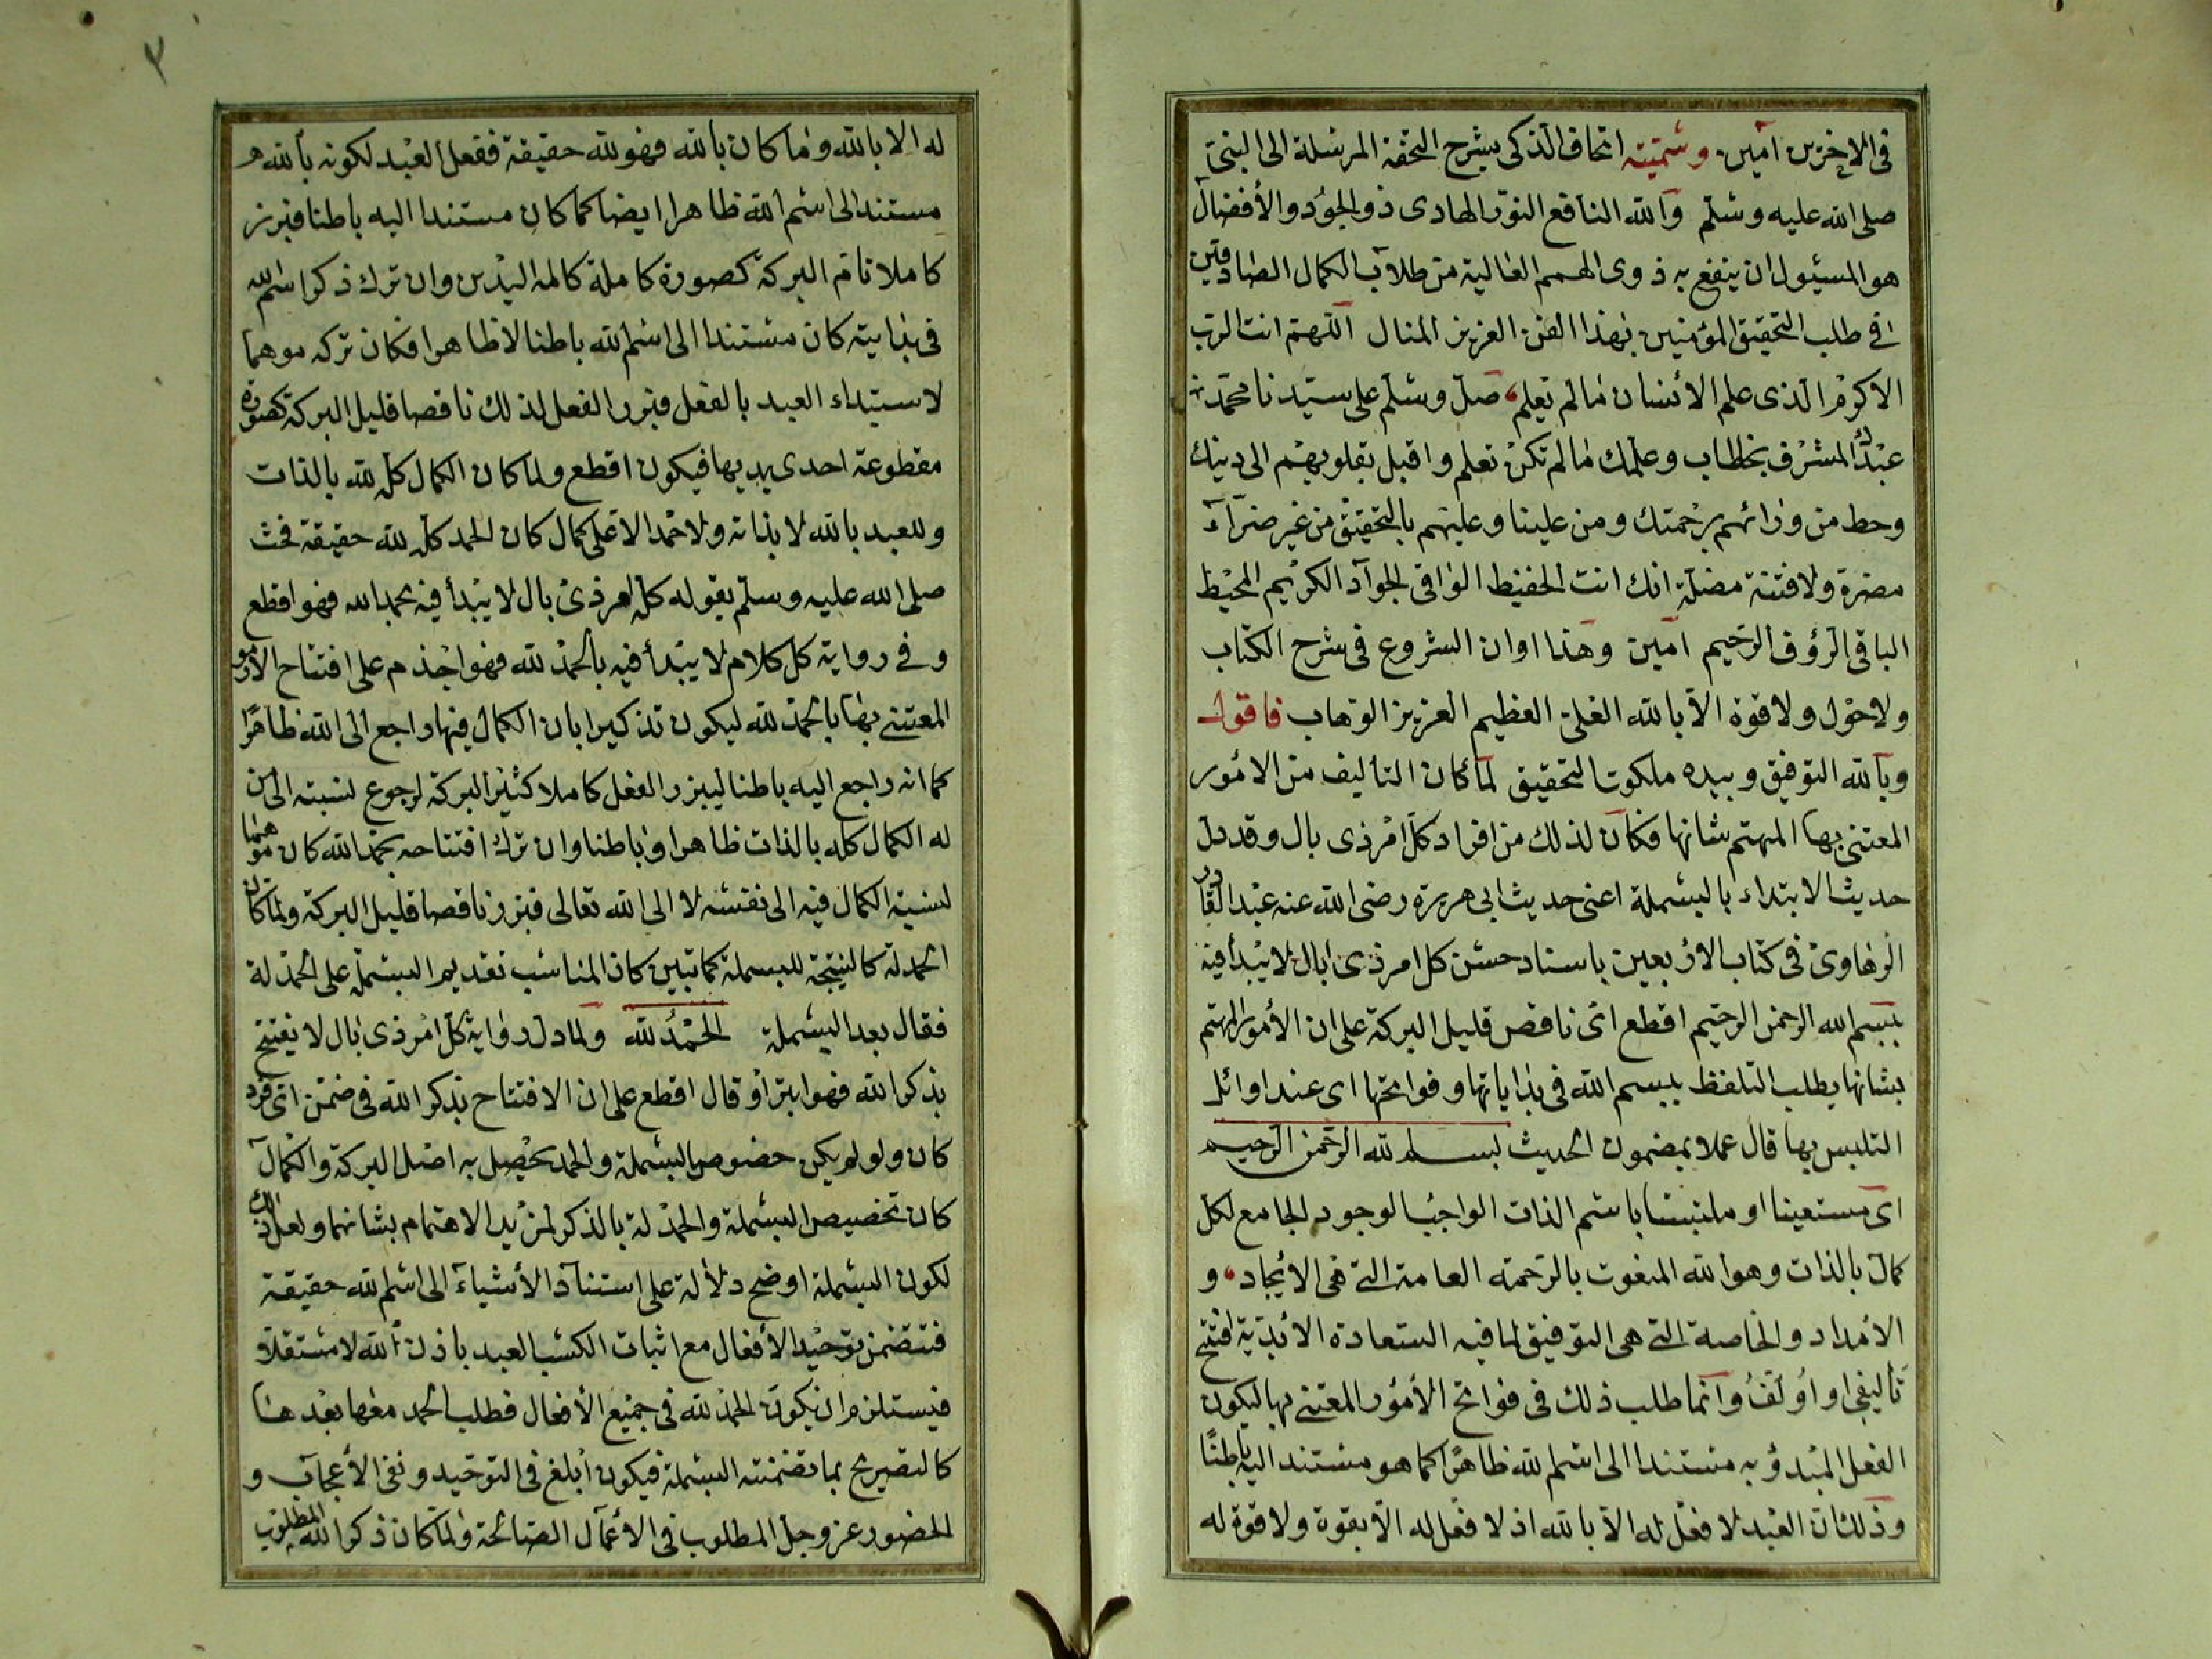 في الاخرين آمين وسميته اتحاف الذكى بشرح التحفة المرسلة الى النبي
صلى الله عليه وسلم والله النافع النور الهادى ذو الجود والأفضال
هو المسئول ان ينفع به ذوى الهمم العالية من طلاب الكمال الصادقين
في طلب التحقيق المؤمنين بهذا الفن العزيز المنال اللهم انت الرب
الاكرم الذى علم الانسان مالم يعلم صل وسلم على سيدنا محمد
عبدك المشرف بخطاب وعلمك مالم تكن تعلم واقبل بقلوبهم الى دينك
وحط من ورائهم برحمتك ومن علينا وعليهم بالتحقيق من غير ضرآء
مضرة ولا فتنة مضلة انك انت الحفيظ الواقى الجواد الكريم المحيط
الباقى الرؤف الرحيم آمين وهذا اوان الشروع في شرح الكتاب
ولا حول ولا قوة الا بالله العلى العظيم العزيز الوهاب فاقول
وبالله التوفيق وبيده ملكوت التحقيق لما كان التأليف من الامور
المعتنى بها المهتم بشانها فكان لذلك من افراد كل امر ذى بال وقد دل
حديث الابتداء بالبسملة اعنى حديث ابى هريرة رضى الله عنه عبد القادر
الرهاوى في كتاب الاربعين باسناد حسن كل امر ذى بال لا يبدأ فيه
ببسم الله الرحمن الرحيم اقطع اى ناقص قليل البركة على ان الأمور المهتم
بشانها يطلب التلفظ ببسم الله في بداياتها وفواتحها اى عند اوائل
التلبس بها قال عملا بمضمون الحديث بسم الله الرحمن الرحيم
اى مستعينا او ملتبسا باسم الذات الواجب الوجود الجامع لكل
كمال بالذات وهو الله المنعوت بالرحمة العامة التى هى الايجاد و
الامداد والخاصة التى هى التوفيق لما فيه السعادة الابدية افتتح
تأليفى او اولف وانما طلب ذلك في فواتح الأمور المعتنى بها ليكون
الفعل المبدؤ به مستندا الى اسم الله ظاهرا كما هو مستند اليه باطنا
وذلك ان العبد لا فعل له الا بالله اذ لا فعل له الا بقوة ولا قوة له
٣
له الا بالله وما كان بالله فهو لله حقيقة ففعل العبد لكونه بالله هو
مستند الى اسم الله ظاهرا ايضا كما كان مستندا اليه باطنا فيبرز
كاملا تام البركة كصورة كاملة كاملة اليدين وان ترك ذكر اسم الله
في بدايته كان مستندا الى اسم الله باطنا لا ظاهرا فكان تركه موهما
لاستبداد العبد بالفعل فيبرز الفعل لذلك ناقصا قليل البركة كصورة
مقطوعة احدى يديها فيكون اقطع ولما كان الكمال كله لله بالذات
وللعبد بالله لا بذاته ولا حمد الا على كمال كان الحمد كله لله حقيقة فحث
صلى الله عليه وسلم بقوله كل امر ذى بال لا يبدأ فيه بحمد الله فهو اقطع
وفي رواية كل كلام لا يبدأ فيه بالحمد لله فهو اجذم على افتتاح الامور
المعتنى بها بالحمد لله ليكون تذكيرا بان الكمال فيها راجع الى الله ظاهرا
كما انه راجع اليه باطنا ليبرز الفعل كاملا كثير البركة لرجوع نسبته الى من
له الكمال كله بالذات ظاهرا وباطنا وان ترك افتتاحه بحمد الله كان موهما
لنسبة الكمال فيه الى نفسه لا الى الله تعالى فيبرز ناقصا قليل البركة ولما كان
الحمدلة كالنتيجة للبسملة كما تبين كان المناسب تقديم البسملة على الحمدلة
فقال بعد البسملة الحمد لله ولما دل رواية كل امر ذى بال لا يفتتح
بذكر الله فهو ابتر او قال اقطع على ان الافتتاح بذكر الله في ضمن اى فرد
كان ولو لم يكن خصوص البسملة والحمد يحصل به اصل البركة والكمال
كان تخصيص البسملة والحمدلة بالذكر لمزيد الاهتمام بشانهما ولعل ذلك
لكون البسملة اوضح دلالة على استناد الأشياء الى اسم الله حقيقة
فتتضمن توحيد الأفعال مع اثبات الكسب للعبد باذن الله لا مستقلا و
فيستلزم ان يكون الحمد لله في جميع الأفعال فطلب الحمد معها بعدها
كالتصريح بما تضمنته البسملة فيكون أبلغ في التوحيد ونفى الأعجاب و
الحضور عز وجل المطلوب في الاعمال الصالحة ولما كان ذكر الله المطلوب